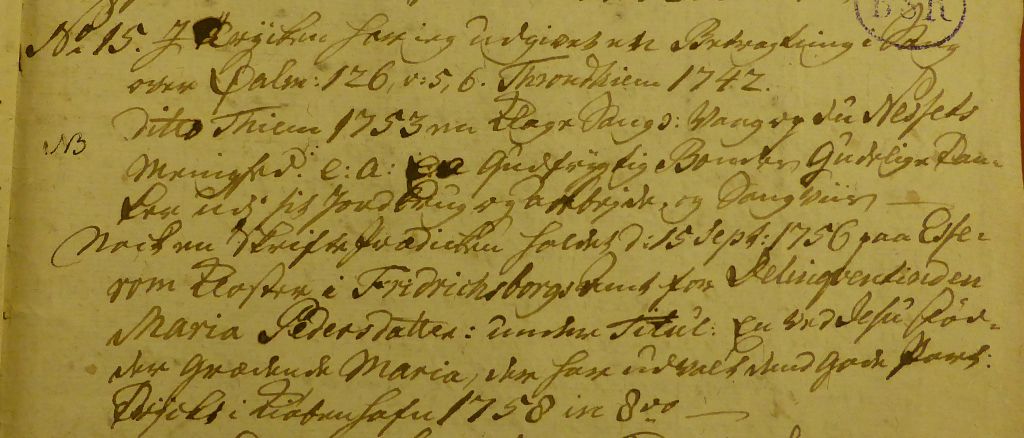 BSR
No. 15. I Trykken har ieg udgivet een Betragtning i Sang
over Psalm: 126, v: 5, 6. Throndhiem 1742.
ditto Thiem 1753 en Klage Sang: Vaag op du Nessets
NB
Menighed. e: a: En Gudfrygtig Bondes Gudelige Tan-
ker udi sit Jordbrug og Arbejde, og Sangviis
Noch en Skriftepredicken holdet d: 15 Sept: 1756 paa Esse-
rom Kloster i Fridrichsborgs Amt for Delinqventinden
Maria Pedersdatter: under Titul: En ved Jesu Fød-
der Grædende Maria, der har udvalt dend gode Part:
Tryckt i Kiøbenhafn 1758 in 8vo